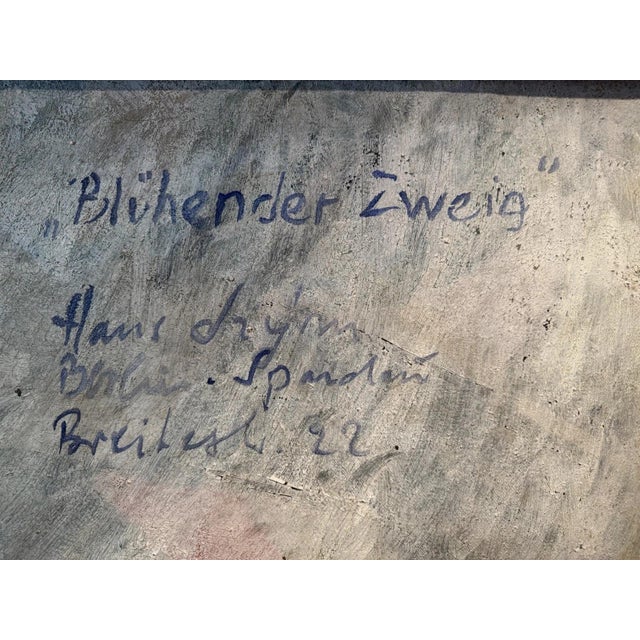 „Blühender Zweig"
Hans Szym
Berlin-Spandau
Breitestr. 22